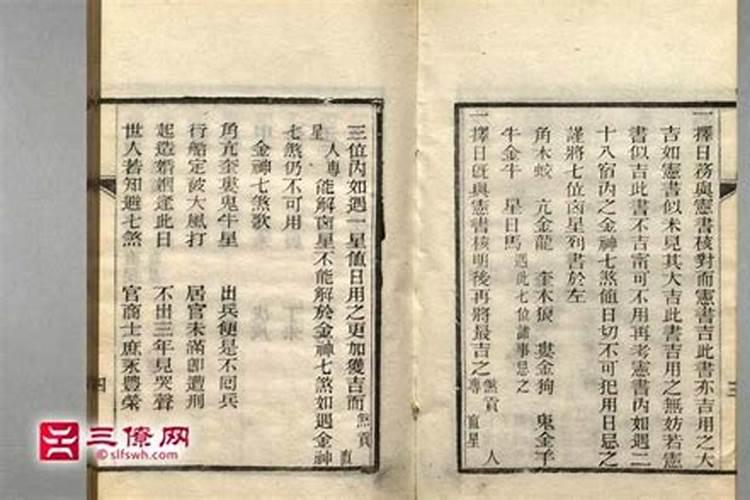 一擇日務與憲書核對而憲書吉此書亦吉用之大
吉如憲書似未見其大吉此書吉用之無妨若憲
書似吉此書不吉甯可不用再考憲書內如遇二
十八宿內之金神七煞值日切不可犯用日忌之
謹將七位凶星列書於左
角木蛟 亢金龍 奎木狼 婁金狗 鬼金羊
牛金牛 星日馬 遇此七位諸事忌之
一擇日旣與憲書核明後再將最吉之 煞貢 直星 人專
三
三位內如遇一星値日用之更加獲吉而 煞貢 直
星 人專 能解凶星不能解於金神七煞如遇金神
七煞仍不可用
金神七煞歌
角亢奎婁鬼牛星 出兵便是不回兵
行船定被大風打 居官未滿卽遭刑
起造婚姻逢此日 不出三年見哭聲
世人若知避七煞 官商士庶永豐榮
四
三僚网
©slfswh.com